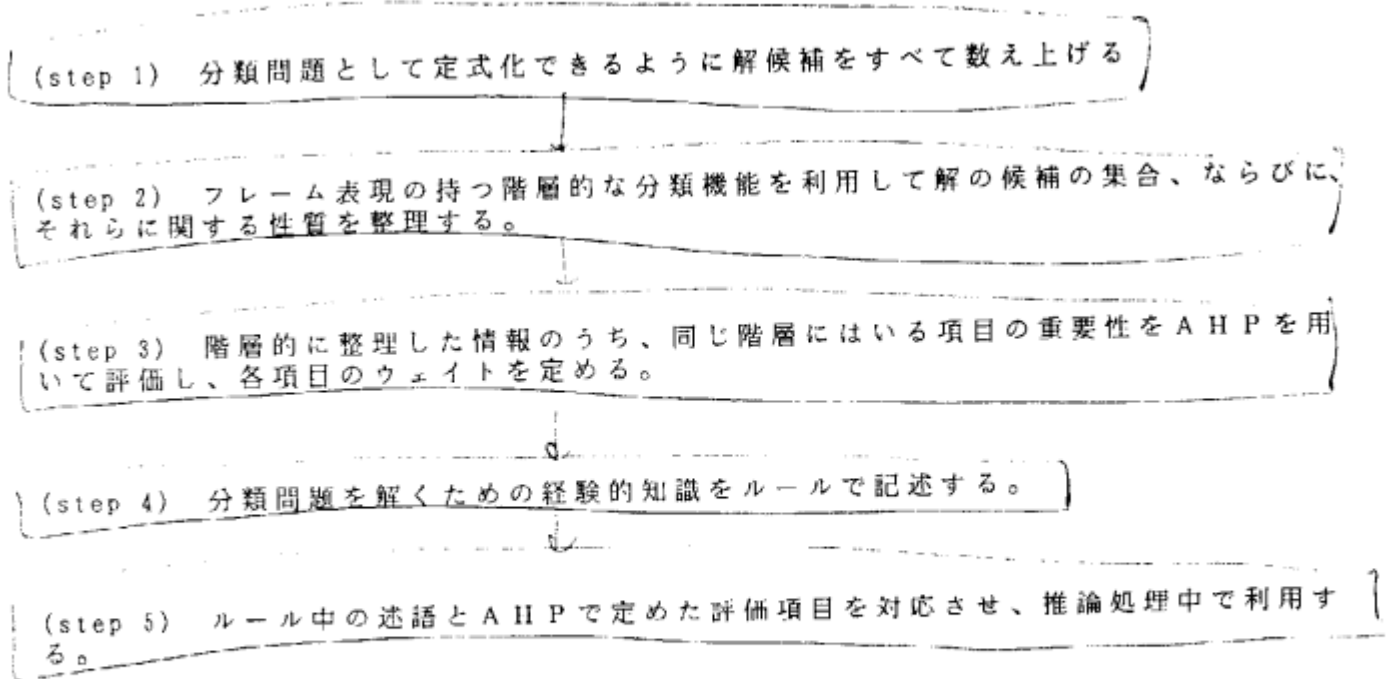 (step 1) 分類問題として定式化できるように解候補をすべて数え上げる
(step 2) フレーム表現の持つ階層的な分類機能を利用して解の候補の集合、ならびに、
それらに関する性質を整理する。
(step 3) 階層的に整理した情報のうち、同じ階層にはいる項目の重要性をAHPを用
いて評価し、各項目のウェイトを定める。
(step 4) 分類問題を解くための経験的知識をルールで記述する。
(step 5) ルール中の述語とAHPで定めた評価項目を対応させ、推論処理中で利用す
る。